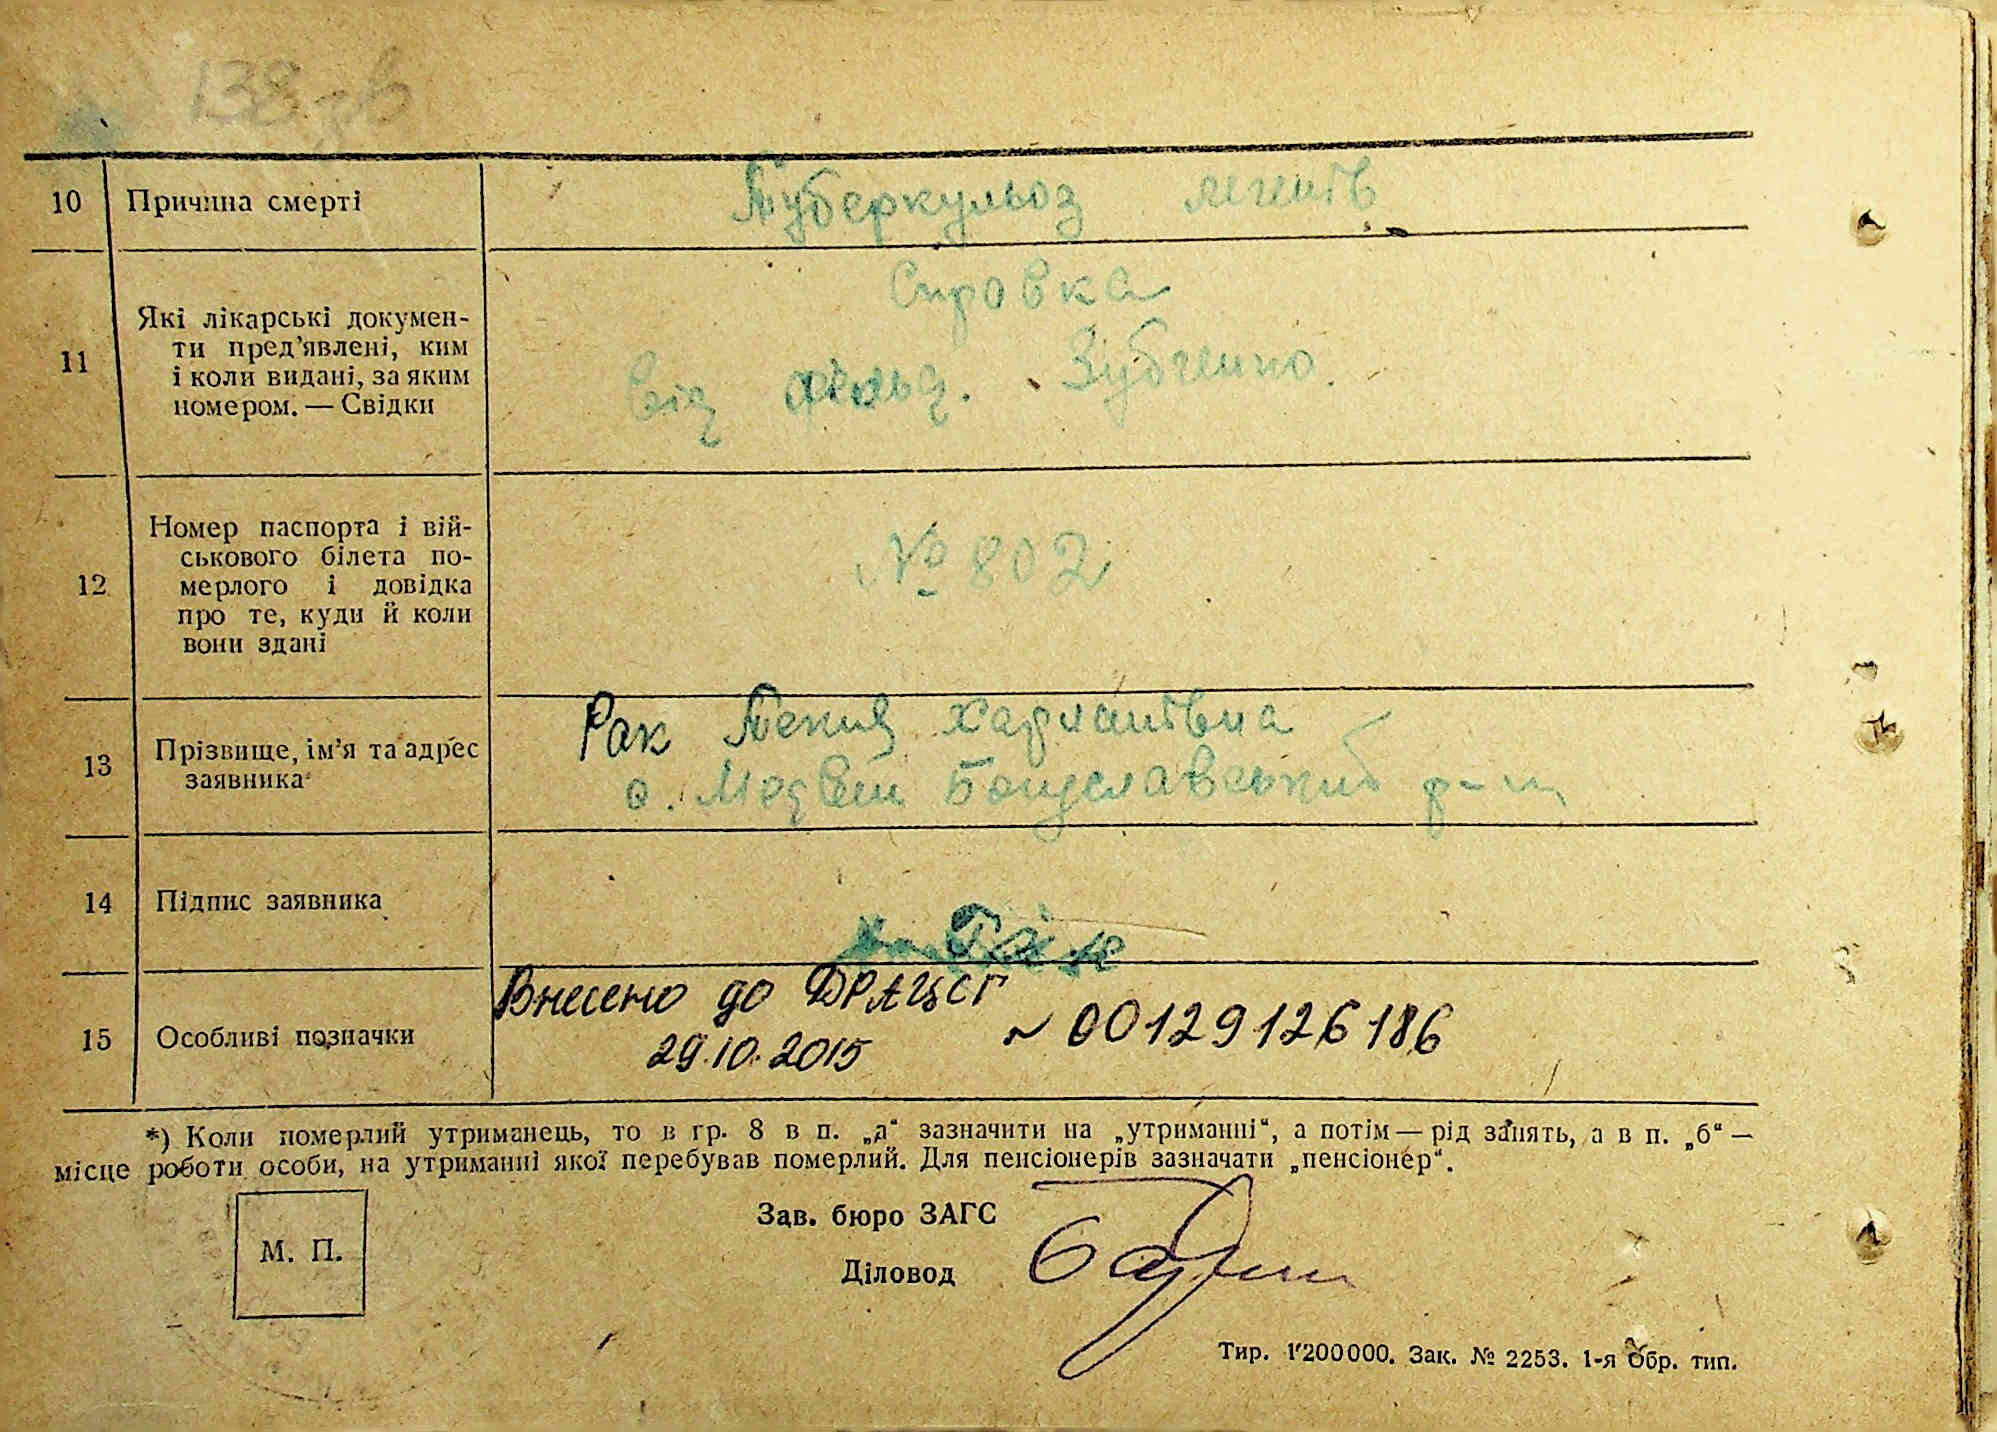 138 зв
10 Причина смерті Туберкульоз легенів
Справка
11 Які лікарські докумен-
ти пред'явлені, ким
і коли видані, за яким
номером. — Свідки
від фельд. Зубченко.
12 Номер паспорта і вій-
ськового білета по-
мерлого і довідка
про те, куди й коли
вони здані
№ 802
13 Прізвище, ім'я та адрес
заявника
Рак Текля Харлантівна
с. Медвен Богуславський р-н
14 Підпис заявника
Рак
15 Особливі позначки
Внесено до ДРАЦСГ
29.10.2015 № 00129126186
*) Коли померлий утриманець, то в гр. 8 в п. „а“ зазначити на „утриманні“, а потім — рід занять, а в п. „б“ —
місце роботи особи, на утриманні якої перебував померлий. Для пенсіонерів зазначати „пенсіонер“.
Зав. бюро ЗАГС
М. П.
Діловод
Тир. 1'200000. Зак. № 2253. 1-я Обр. тип.